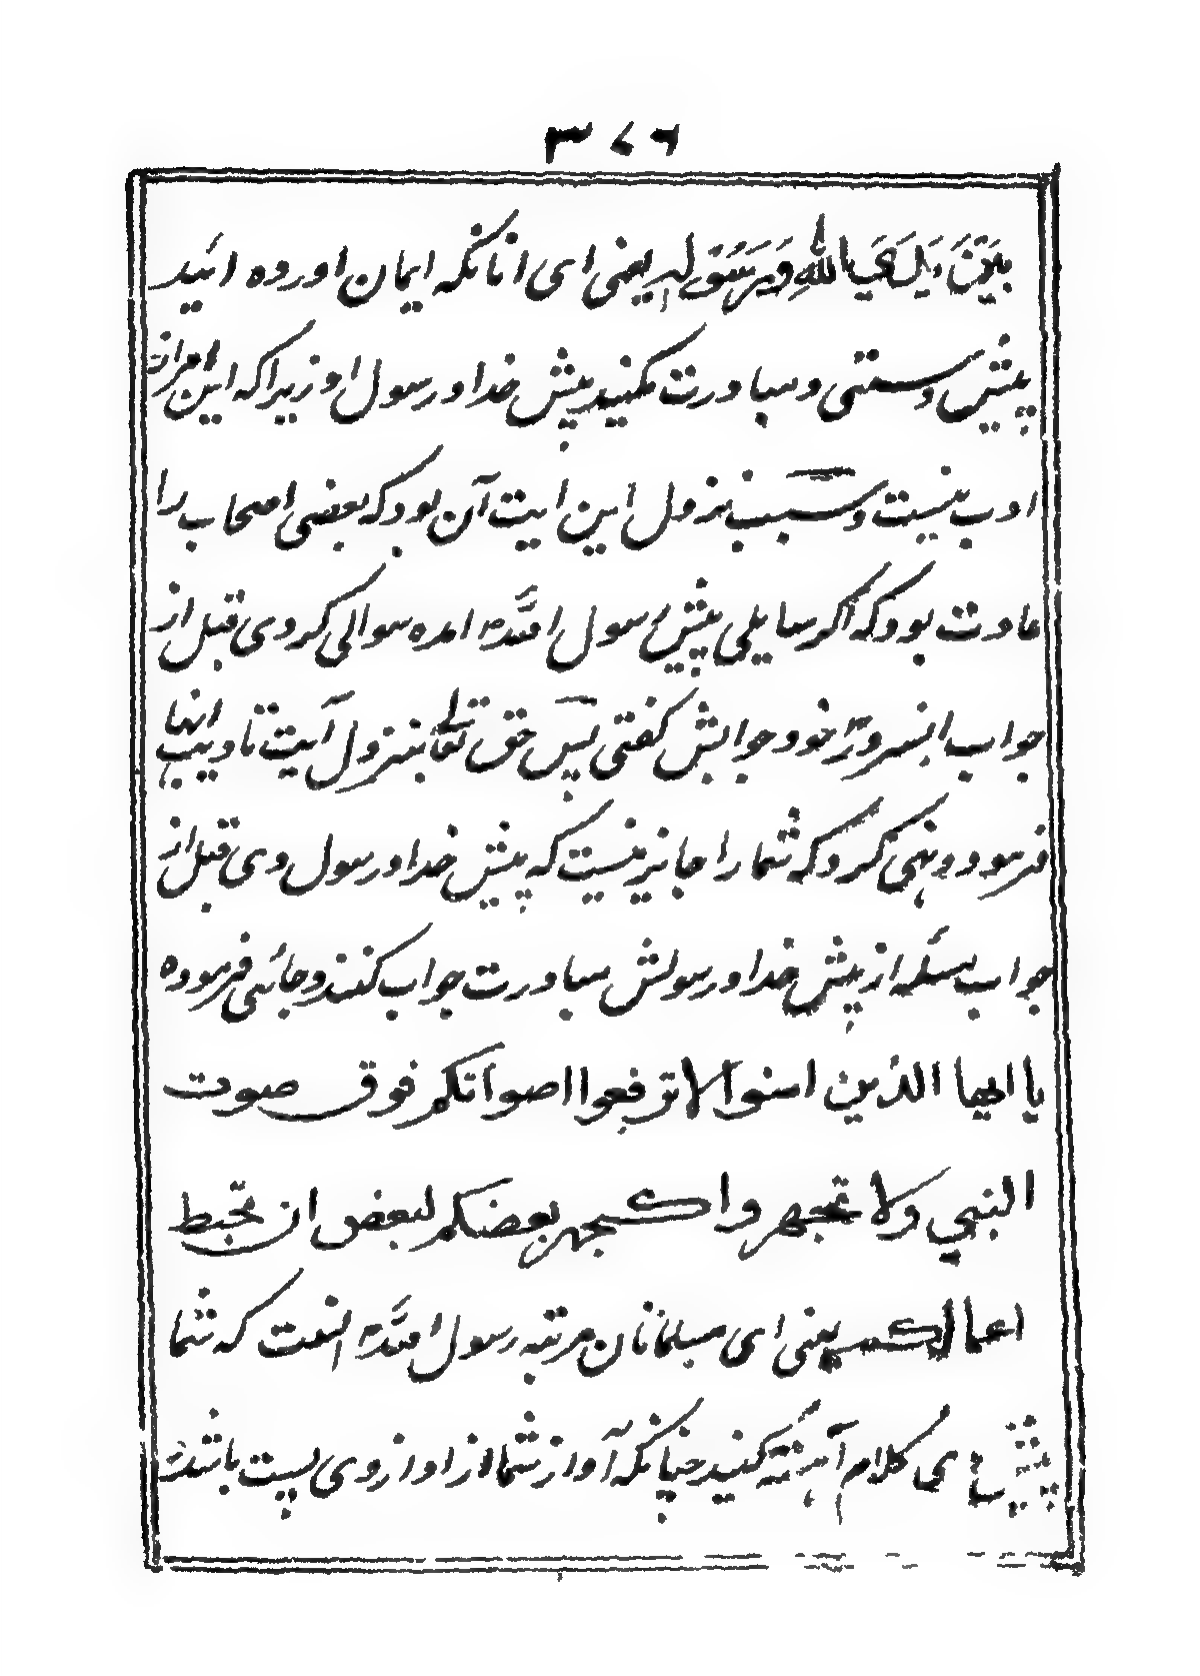 ٣٧٦
بَيْنَ يَدَيِ اللهِ وَرَسُوْلِهِ یعنی ای انانکه ایمان اورده ائید
پیش دستی و مبادرت مکنید پیش خدا و رسول او زیرا که این امر از
ادب نیست و سبب نزول این ایت آن بود که بعضی اصحاب را
عادت بود که اکر سایلی پیش رسول الله امده سوالی کردی قبل از
جواب انسرور خود جوابش کفتی پس حق تعالی بنزول آیت تادیب انها
فرمود و نهی کرد که شما را جایز نیست که پیش خدا و رسول وی قبل از
جواب مسئله از پیش خدا و رسولش مبادرت جواب کنند و جائی فرموده
یا ایها الذین امنوا لا ترفعوا اصواتکم فوق صوت
النبي ولا تجهروا کجهر بعضکم لبعض ان تحبط
اعمالکم یعنی ای مسلمانان مرتبه رسول الله انست که شما
پیش وی کلام آهسته کنید چنانکه آواز شما از اواز وی پست باشد